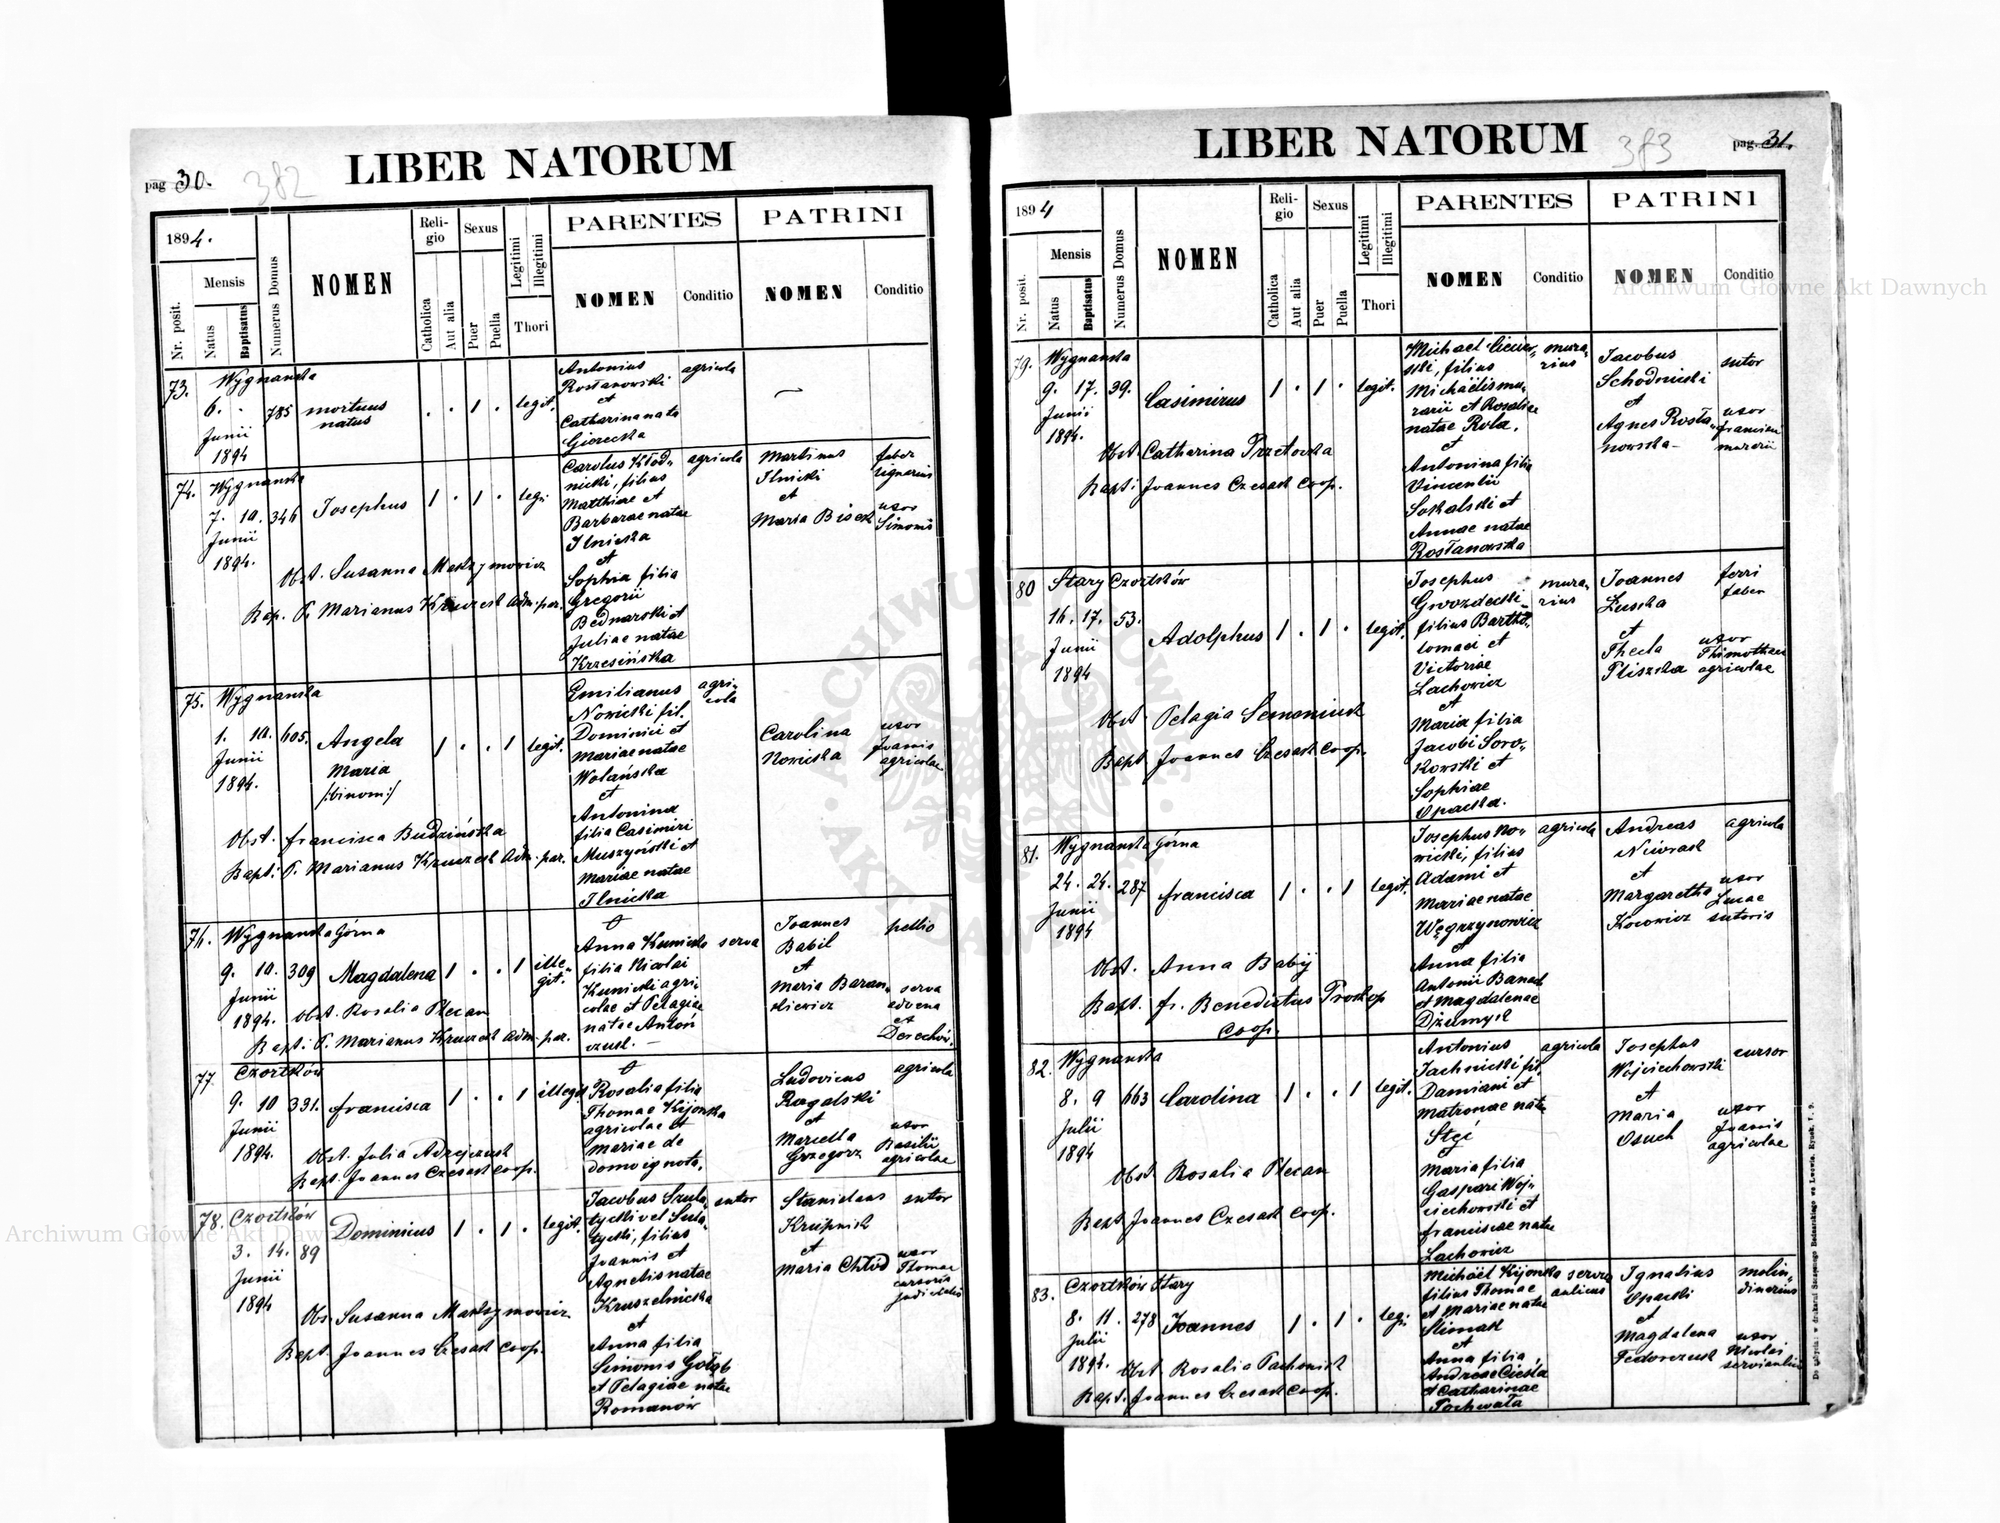 LIBER NATORUM
pag 30. 382
1894.
Nr. posit.
Mensis
Natus
Baptisatus
Numerus Domus
NOMEN
Religio
Catholica
Aut alia
Sexus
Puer
Puella
Legitimi
Illegitimi
Thori
PARENTES
NOMEN
Conditio
PATRINI
NOMEN
Conditio
73. Wygnanka
6. . 785 mortuus natus . . 1 . legit.
Junii
1894
Antonius agricola
Rostanowski
et
Catharina nata
Giorecka
74. Wygnanka
7. 10. 346 Josephus 1 . 1 . legi:
Junii
1894.
Obst. Susanna Maksymowicz
Bap. P. Marianus Kruczek Adm. par.
Carolus Kłod- agricola
nicki, filius
Matthiae et
Barbarae natae
Ilnicka
et
Sophia filia
Gregorii
Bednarski et
Juliae natae
Krzesińska
Martinus faber
Ilnicki lignarius
et
Maria Bisek uxor
Simonis
75. Wygnanka
1. 10. 605. Angela 1 . . 1 legit.
Junii Maria
1894. /:binom:/
Obst. Francisca Budzińska
Bapt: P. Marianus Kruczek Adm. par.
Emilianus agri-
Nowicki fil. cola
Dominici et
Mariae natae
Wolańska
et
Antonina
filia Casimiri
Muszyński et
Mariae natae
Ilnicka
Carolina uxor
Nowicka Joannis
agricolae
76. Wygnanka Górna
9. 10. 309 Magdalena 1 . . 1 ille-
Junii git.
1894. Obst. Rosalia Plecan
Bapt: P. Marianus Kruczek Adm. par.
Anna Kunicka serva
filia Nicolai
Kunicki agri-
colae et Pelagiae
natae Antoń
czuk. —
Joannes pellio
Babil
et
Maria Baran- serva
kiewicz advena
et
77 Czortków
9. 10 331. Francisca 1 . . 1 illegit
Junii
1894.
Obst. Julia Adzejczuk
Bapt. Joannes Czesak Coop.
Rosalia filia
Thomae Kijonka
agricolae et
Mariae de
domo ignota.
Ludovicus agricola
Rogalski
et
Marcella uxor
Grzegorz Basilii
agricolae
78. Czortków
3. 14. 89 Dominicus 1 . 1 . legit.
Junii
1894
Obs. Susanna Maksymowicz
Bapt. Joannes Czesak Coop.
Jacobus Szula- sutor
tycki vel Sula-
tycki, filius
Joannis et
Agnetis natae
Kruszelnicka
et
Anna filia
Simonis Gołąb
et Pelagiae natae
Romanów
Stanislaus sutor
Krupnik
et
Maria Chłód uxor
Thomae
cursoris
judicialis
LIBER NATORUM
383 pag. 31.
1894
Nr. posit.
Mensis
Natus
Baptisatus
Numerus Domus
NOMEN
Religio
Catholica
Aut alia
Sexus
Puer
Puella
Legitimi
Illegitimi
Thori
PARENTES
NOMEN
Conditio
PATRINI
NOMEN
Conditio
79. Wygnanka
9. 17. 39. Casimirus 1 . 1 . legit.
Junii
1894.
Obst. Catharina Przetocka
Bapt: Joannes Czesak Coop.
Michael mura-
ski, filius rius
Michaëlis mu-
rarii et Rosaliae
natae Rola,
et
Antonina filia
Vincentii
Sokalski et
Annae natae
Rostanowska
Jacobus sutor
Schodnicki
et
Agnes Rosta- uxor
nowska- Francisci
murarii
80 Stary Czortków
16. 17. 53. Adolphus 1 . 1 . legit.
Junii
1894
Obst. Pelagia Semeniuk
Bapt Joannes Czesak Coop.
Josephus mura-
Gwozdecki- rius
filius Bartho-
lomaei et
Victoriae
Lachowicz
et
Maria filia
Jacobi Soro-
kowski et
Sophiae
Opacka.
Joannes ferri
Zuska faber
et
Thecla uxor
Pliszka Thimothaei
agricolae
81. Wygnanka Górna
24. 24. 287 Francisca 1 . . 1 legit.
Junii
1894
Obst. Anna Babij
Bapt. Fr. Benedictus Prokop
Coop.
Josephus No- agricola
wicki, filius
Adami et
Mariae natae
Węgrzynowicz
et
Anna filia
Antonii Banach
et Magdalenae
Dżumyk
Andreas agricola
et
Margaretha uxor
Kocowicz Lucae
sutoris
82. Wygnanka
8. 9 663 Carolina 1 . . 1 legit.
Julii
1894
Obst. Rosalia Plecan
Bapt Joannes Czesak Coop.
Antonius agricola
Jachnicki fil.
Damiani et
Matronae natae
Maria filia
Gaspari Woj-
ciechowski et
Franciscae natae
Lachowicz
Josephus cursor
Wojciechowski
et
Maria uxor
Osuch Joannis
agricolae
83. Czortków Stary
8. 11. 278 Joannes 1 . 1 . legi:
Julii
1894. Obst Rosalia Pachoniek
Bapt. Joannes Czesak Coop.
Michaël Kijonka servus
filius Thomae aulicus
et Mariae natae
Slimak
et
Anna filia
Andreae Ciesla
et Catharinae
Pochwała
Ignatius molen-
Opacki dinarius
et
Magdalena uxor
Fedorczuk Nicolai
servi aulici
Archiwum Główne Akt Dawnych
Archiwum Główne Akt Dawnych